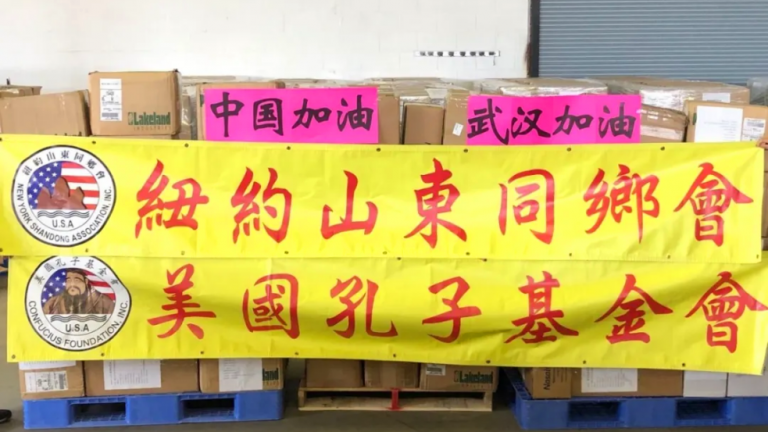 Lakeland
INDUSTRIES
中国加油
武汉加油
紐約山東同鄉會
U.S.A
NEW YORK SHANDONG ASSOCIATION, INC.
紐約山東同鄉會
美國孔子基金會
U.S.A
CONFUCIUS FOUNDATION, INC.
美國孔子基金會
Lakeland